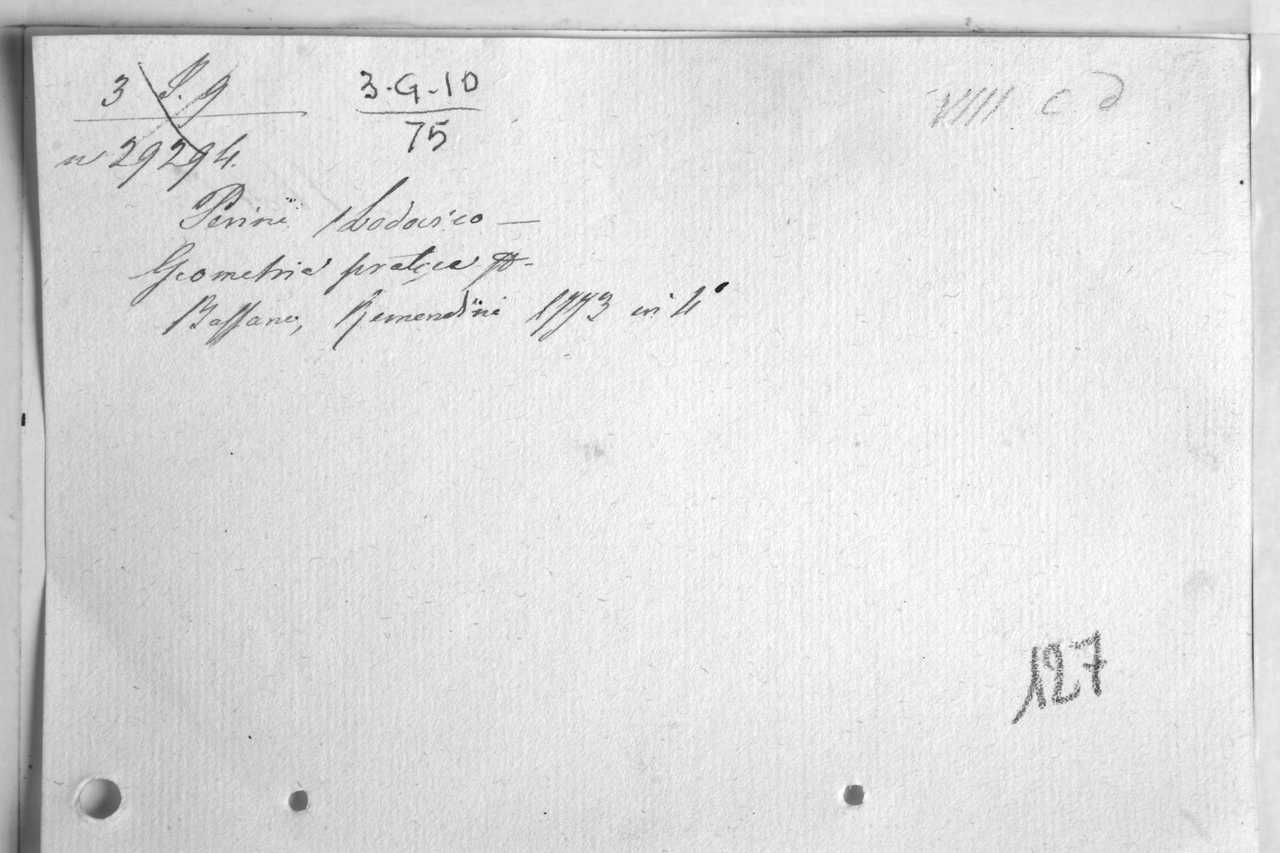 3 P. 9
3·G·10
VIII C d
75
n 29294.
Perini Lodovico —
Geometria pratica
Bassano, Remondini 1773 in 4°
127